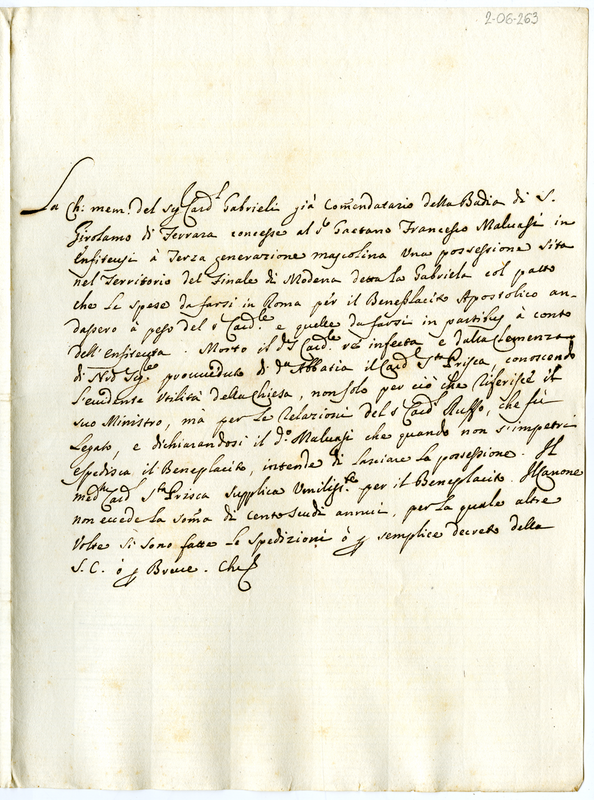 2-06-263
La Ch: mem: del Sig.r Card.l Gabrielli già Com̃endatario della Badia di S.
Girolamo di Ferrara concesse al S.r Gaetano Francesco Maluasi in
Enfiteusi à terza generazione mascolina una possessione sita
nel Territorio del Finale di Modena detta la Gabriela col patto
che le spese da farsi in Roma per il Beneplacito Apostolico an-
dassero à peso del s.r Card.le e quelle da farsi in partibus à conto
dell'Enfiteuta. Morto il d.o Card.le re infecta e dalla Clemenza
di N.ro Sig.re proueduto di d.a Abbatia il Card.l S.ta Prisca conoscendo
l'euidente Vtilità della Chiesa, non solo per ciò che riferisce il
suo Ministro, mà per le relazioni del s.r Card.l Ruffo, che fù
legato, e dichiarandosi il d.o Maluasi che quando non s'impetri
e spedisca il Beneplacito, intende di lasciare la possessione. Il
med.mo Card.l S.ta Prisca supplica Vmiliss.te per il Beneplacito. Il Canone
non eccede la som̃a di cento scudi annui, per la quale altre
Volte si sono fatte le spedizioni ò p semplice decreto della
S. C. ò p Breue. Che